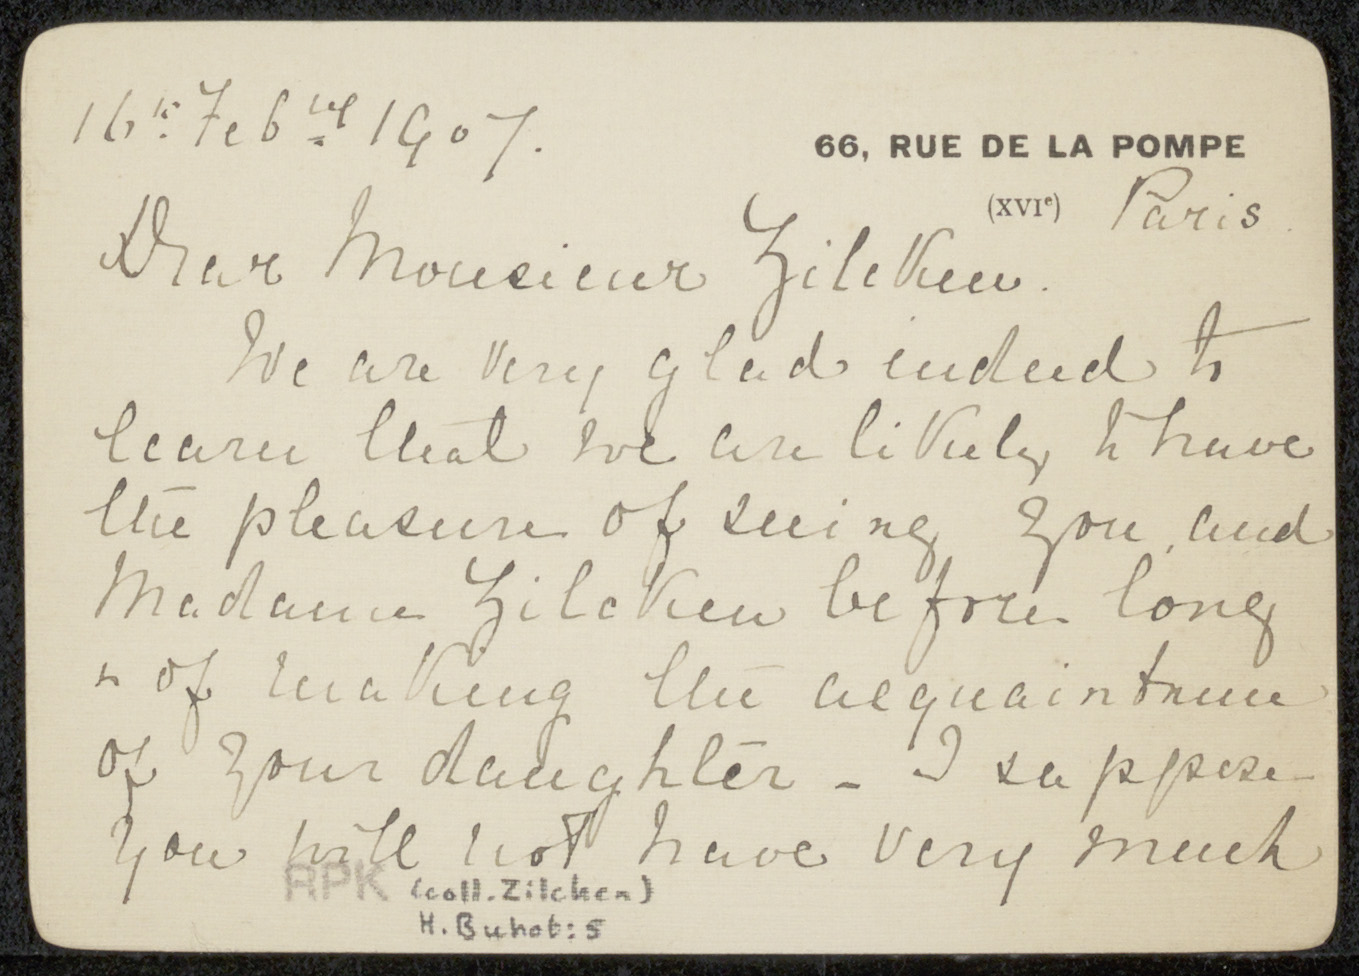 16th Febry 1907.
66, RUE DE LA POMPE
(XVIe) Paris.
Dear Monsieur Zilcken.
We are very glad indeed to
learn that we are likely to have
the pleasure of seeing you, and
Madame Zilcken before long
& of making the acquaintance
of your daughter - I suppose
you will not have very much
RPK (coll. Zilcken)
H. Buhot: 5